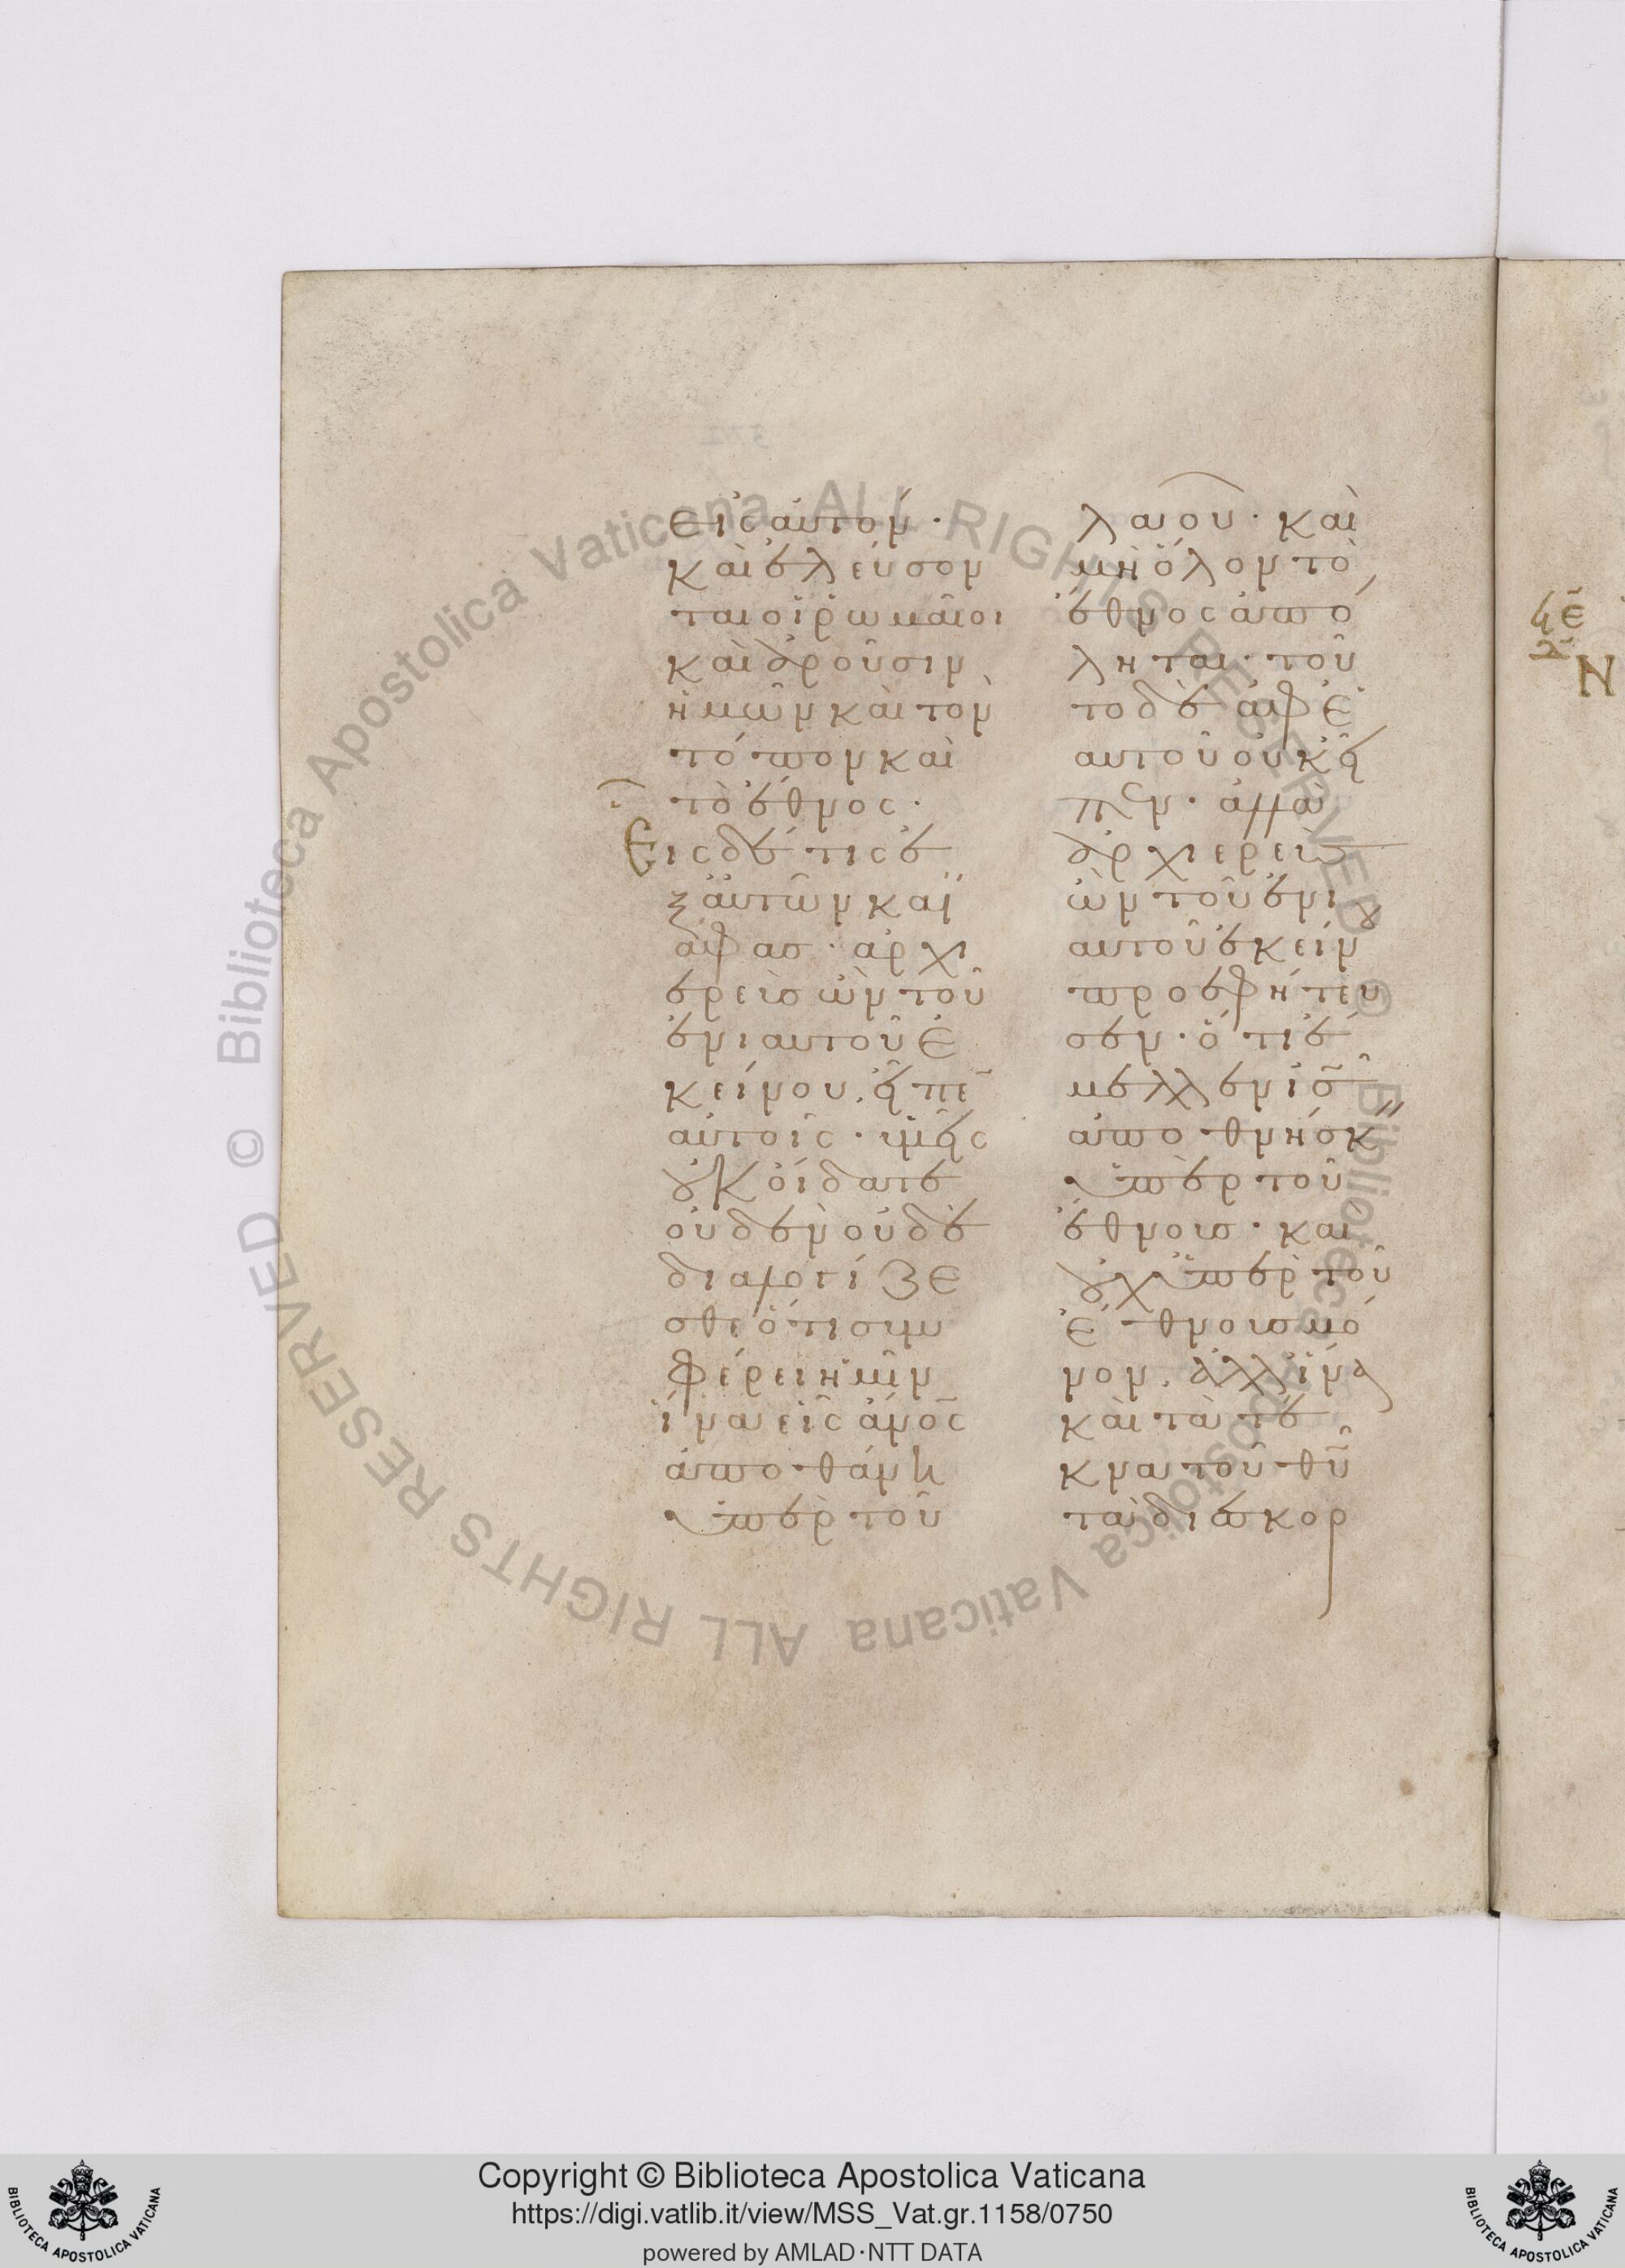 εἰς αὐτόν·
καὶ ἐλεύσον
ται οἱ ῥωμαῖοι
καὶ ἀροῦσιν
ἡμῶν καὶ τὸν
τόπον καὶ
τὸ ἔθνος·
Εἷς δέ τις ἐ
ξ αὐτῶν καϊ
άφας· ἀρχι
ερεὺς ὢν τοῦ
ἐνιαυτοῦ ἐ
κείνου, εἶπε̄
αὐτοῖς· ὑμεῖς
οὐκ οἴδατε
οὐδὲν οὐδὲ
διαλογίζε
σθε ὅτι συμ
φέρει ἡμῖν
ἵνα εἷς ἄνο̄ς
ἀποθάνη
ὑπὲρ τοῦ
λαοῦ· καὶ
μὴ ὅλον τὸ
ἔθνος ἀπό
ληται· τοῦ
το δὲ ἀφ' ἑ
αυτοῦ οὐκ εἶ
πεν· ἀλλὰ
ἀρχιερεὺς
ὢν τοῦ ἐνι
αυτοῦ ἐκείνου
προεφήτευ
σεν· ὅτι ἔ
μελλεν ἰ̄ς̄
ἀποθνήσκ
ὑπὲρ τοῦ
ἔθνους· καὶ
οὐχ ὑπὲρ τοῦ
ἔθνους μό
νον, ἀλλ' ἵνα
καὶ τὰ τέ
κνα τοῦ θῡ
τὰ διεσκορ
Ν
Biblioteca Apostolica Vaticana ALL RIGHTS RESERVED ©
Biblioteca Apostolica Vaticana ALL RIGHTS RESERVED ©
Copyright © Biblioteca Apostolica Vaticana
https://digi.vatlib.it/view/MSS_Vat.gr.1158/0750
powered by AMLAD·NTT DATA
BIBLIOTECA APOSTOLICA VATICANA
BIBLIOTECA APOSTOLICA VATICANA